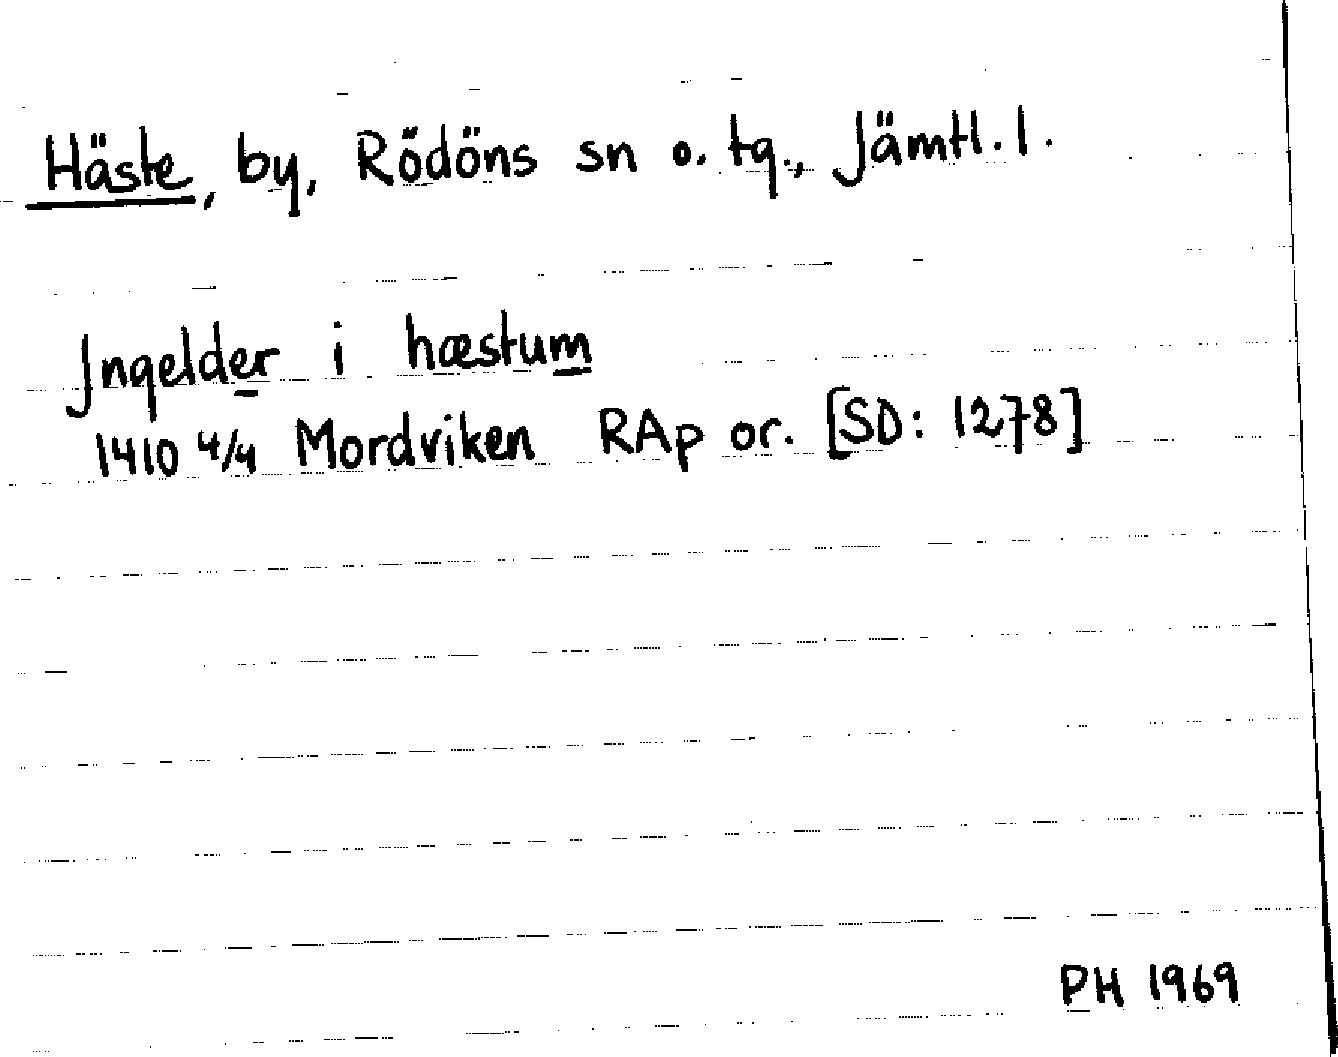 Häste, by, Rödöns sn o. tg., Jämtl. l.
Ingelder i hæstum
1410 4/4 Mordviken RAp or. [SD: 1278]
PH 1969